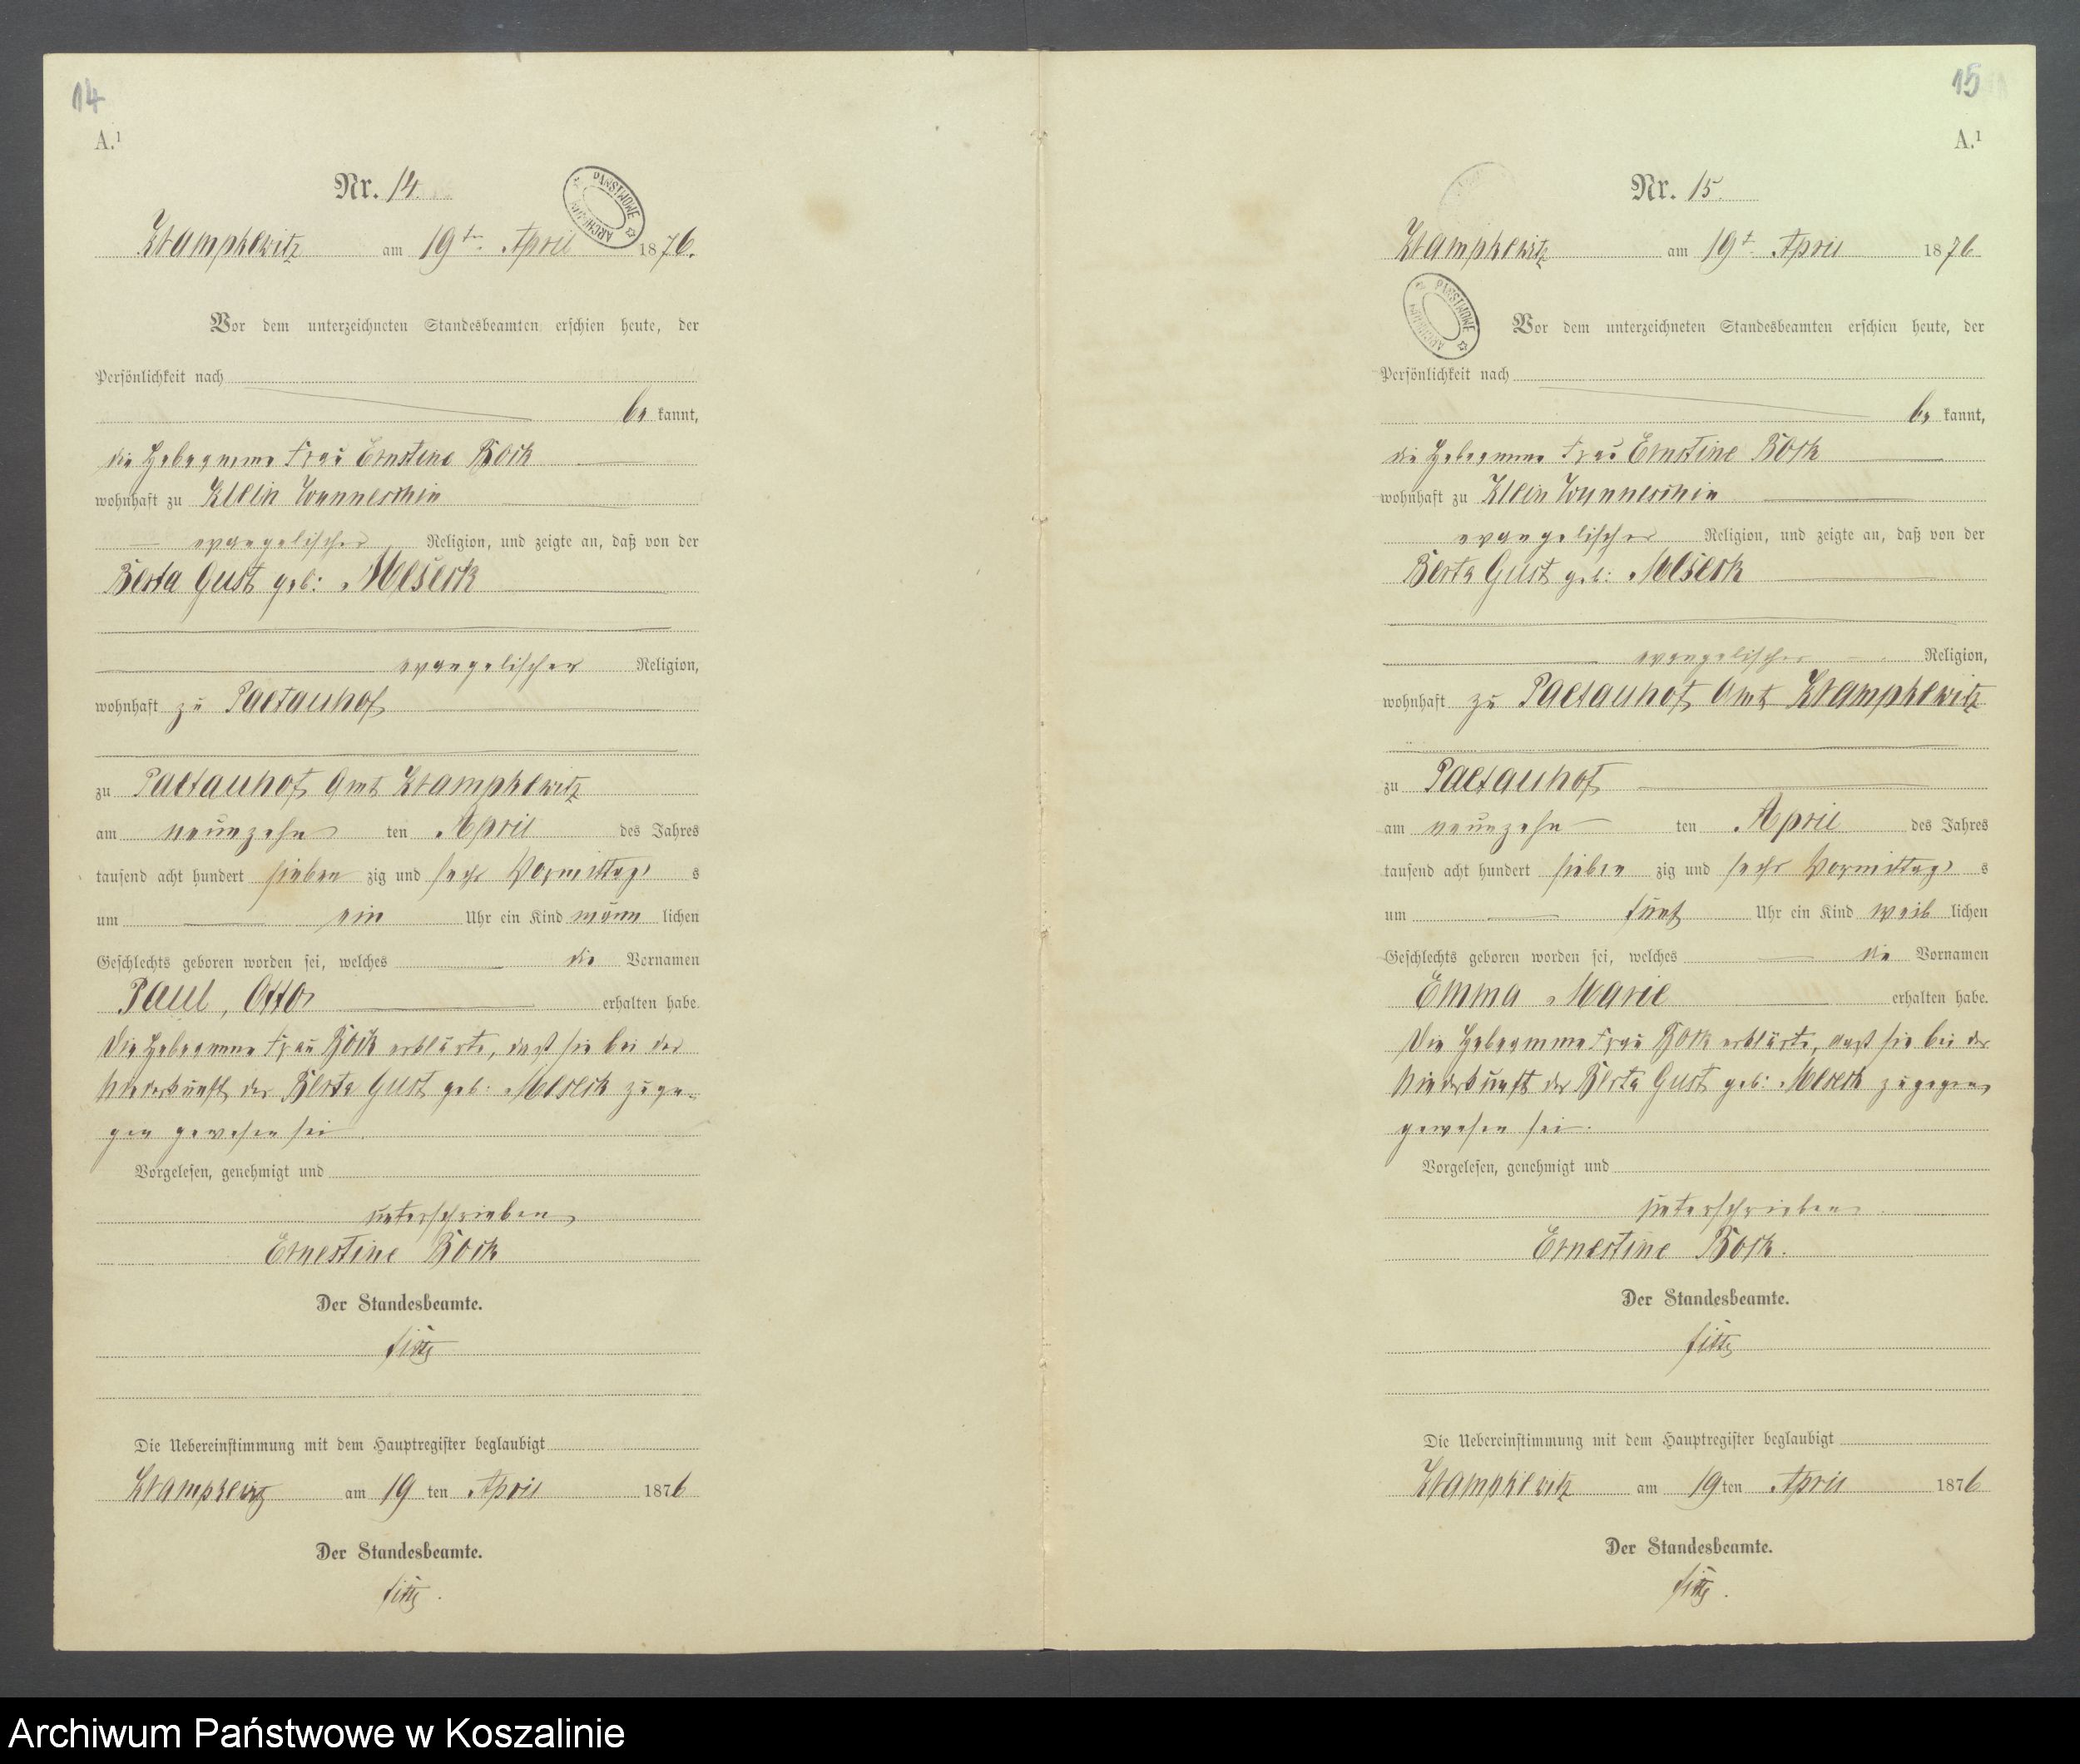 14
A.¹
Nr. 14.
PAŃSTWOWE ARCHIWUM
Krampkewitz am 19t. April 1876.
Vor dem unterzeichneten Standesbeamten erschien heute, der
Persönlichkeit nach
be kannt,
die Hebeamme Frau Ernstine Bock
wohnhaft zu Klein Wunneschin
evangelischer Religion, und zeigte an, daß von der
Berta Gust geb:
evangelischer Religion,
wohnhaft zu Paetauhof
zu Paetauhof Amt Krampkewitz
am neunzehn ten April des Jahres
tausend acht hundert sieben zig und sechs Vormittag s
um ein Uhr ein Kind männ lichen
Geschlechts geboren worden sei, welches die Vornamen
Paul, Otto erhalten habe.
Die Hebeamme Frau Bock erklärte, dast sie bei der
Niederkunft der Berta Gust geb: zuge-
gen gewesen sei.
Vorgelesen, genehmigt und
unterschrieben
Ernestine Bock
Der Standesbeamte.
Die Uebereinstimmung mit dem Hauptregister beglaubigt
Krampkewitz am 19 ten April 1876
Der Standesbeamte.
15
A.¹
Nr. 15.
Krampkewitz am 19t. April 1876
PAŃSTWOWE ARCHIWUM
Vor dem unterzeichneten Standesbeamten erschien heute, der
Persönlichkeit nach
be kannt,
die Hebeamme Frau Ernstine Bock
wohnhaft zu Klein Wunneschin
evangelischer Religion, und zeigte an, daß von der
Berta Gust geb:
evangelischer Religion,
wohnhaft zu Paetauhof Amt Krampkewitz
zu Paetauhof
am neunzehn ten April des Jahres
tausend acht hundert sieben zig und sechs Vormittag s
um fünf Uhr ein Kind weib lichen
Geschlechts geboren worden sei, welches die Vornamen
Emma Marie erhalten habe.
Die Hebeamme Frau Bock erklärte, dast sie bei der
Niederkunft der Berta Gust geb: zugegen
gewesen sei.
Vorgelesen, genehmigt und
unterschrieben.
Ernestine Bock.
Der Standesbeamte.
Die Uebereinstimmung mit dem Hauptregister beglaubigt
Krampkewitz am 19 ten April 1876
Der Standesbeamte.
Archiwum Państwowe w Koszalinie